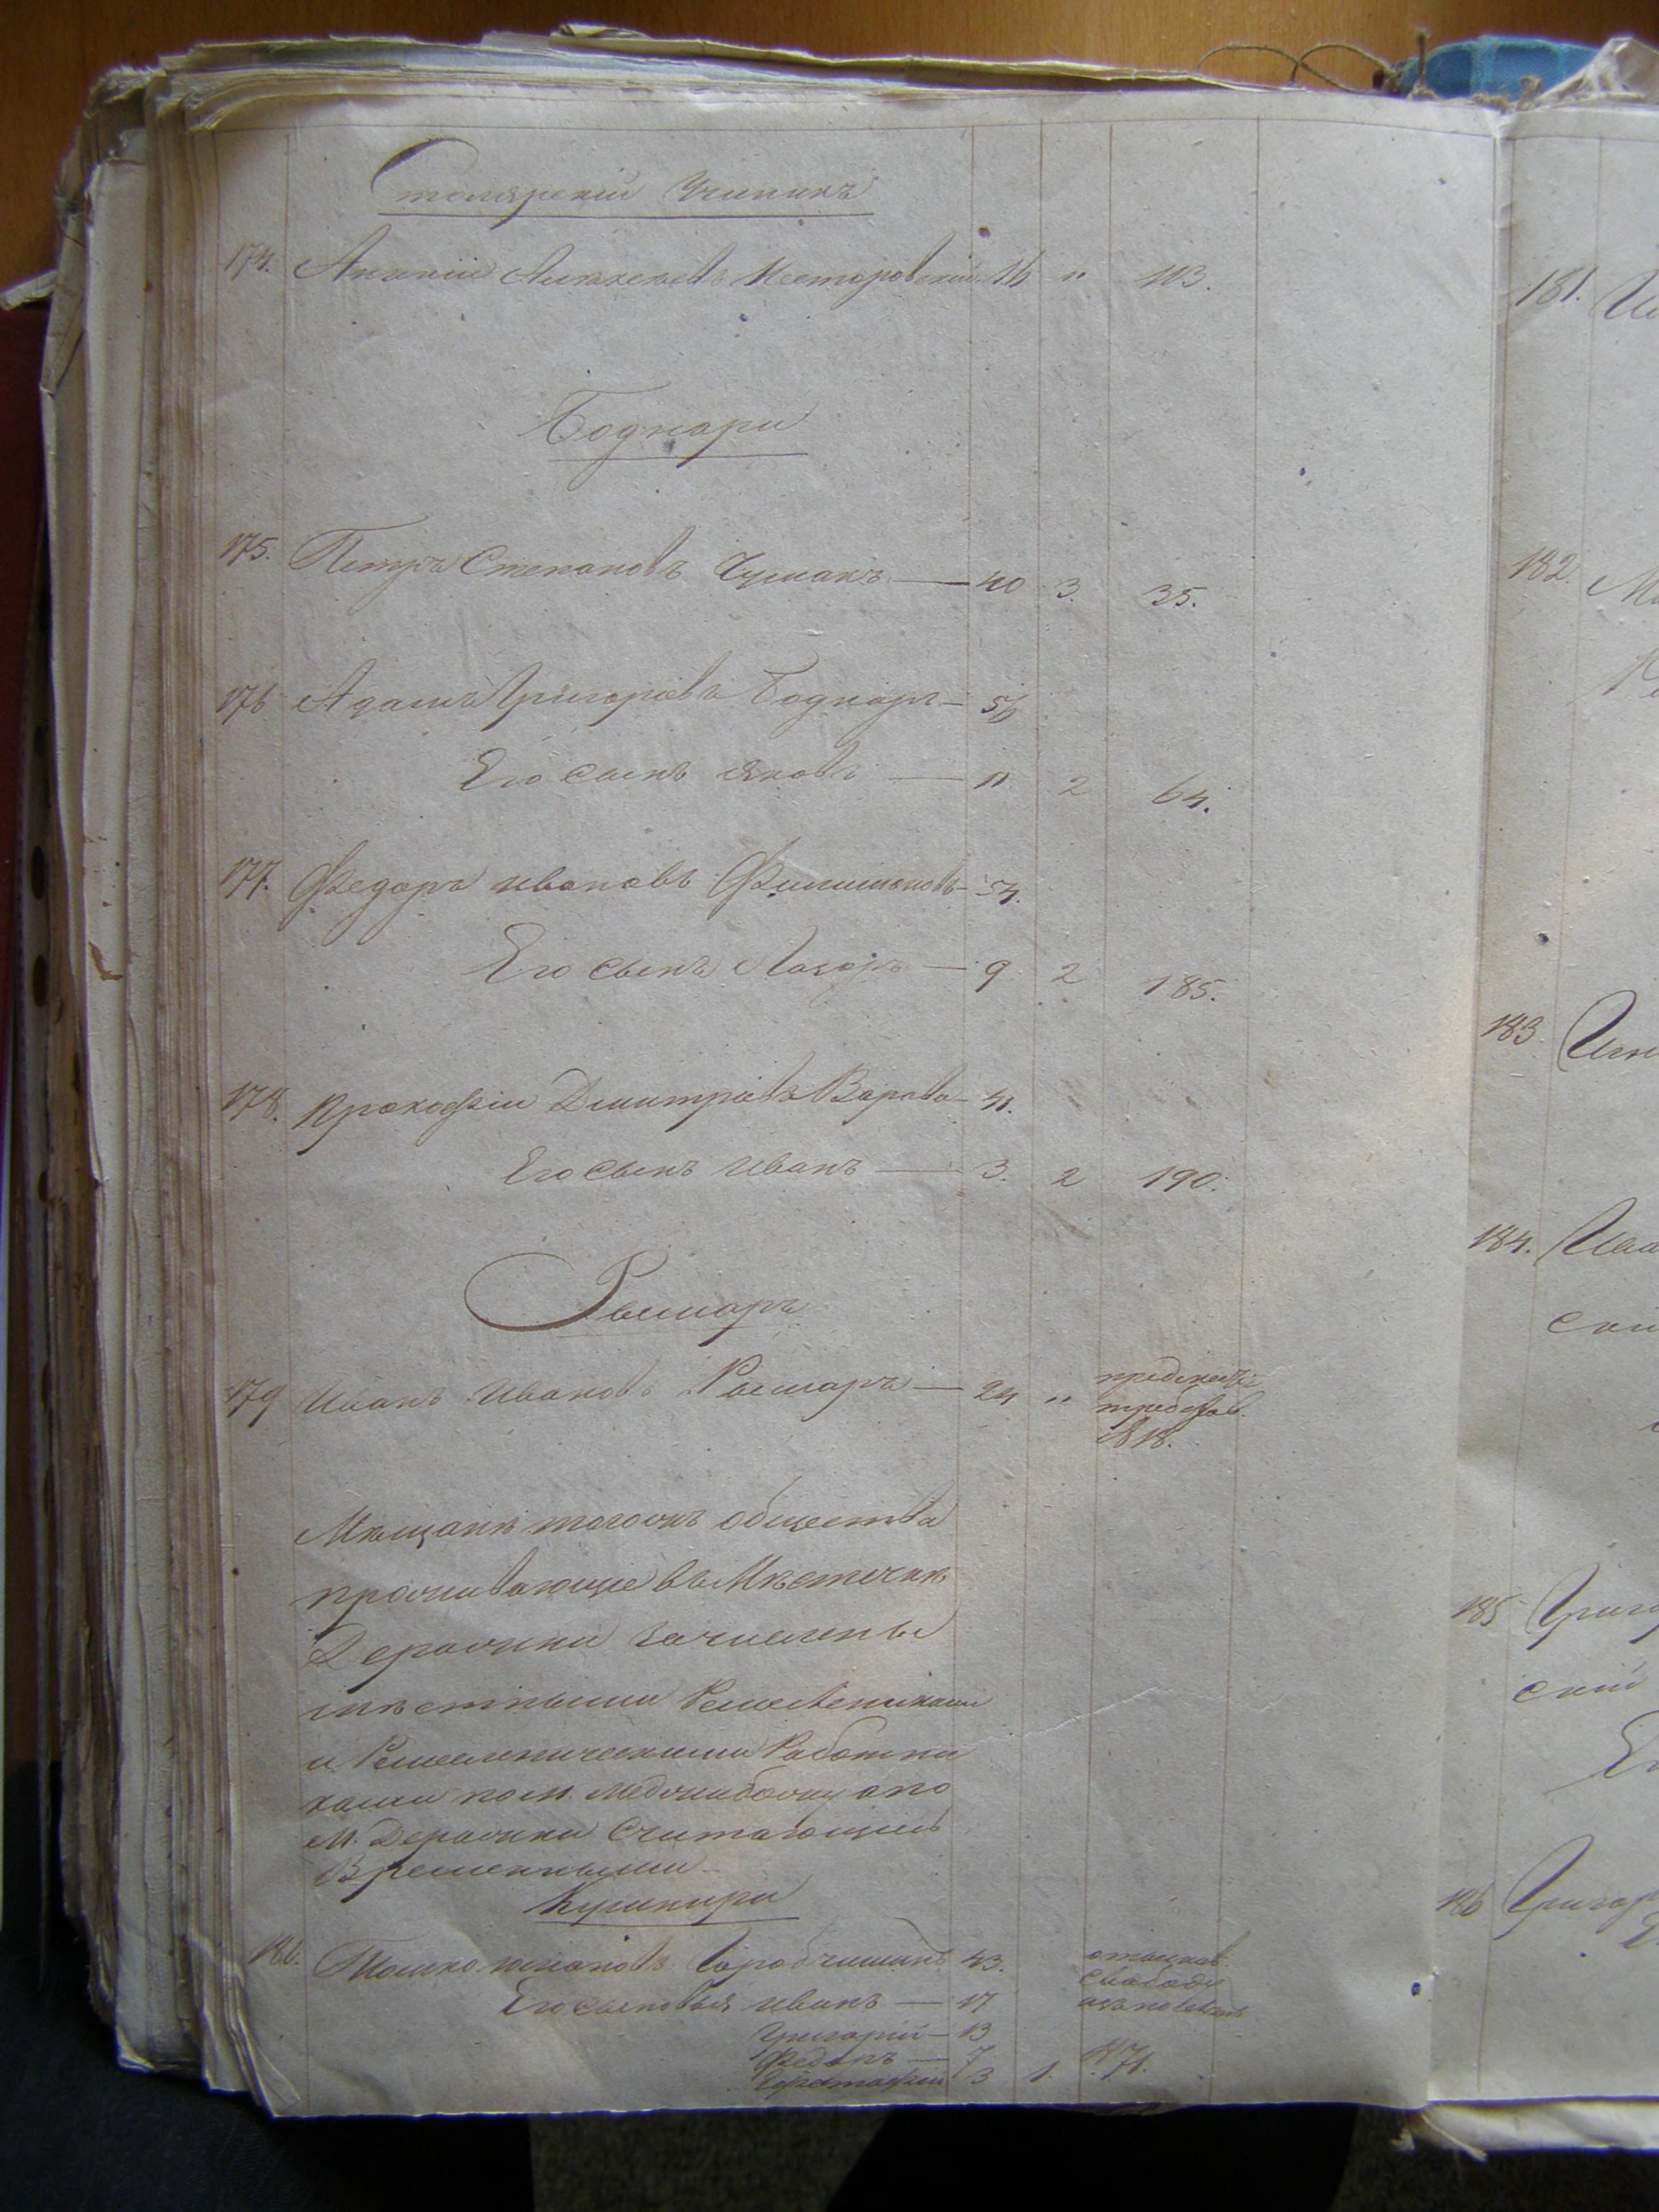 Столярскій Ученикъ
174. Ананій Алексеевъ Нестеровскій 16 " 113.
Боднари
175. Петръ Степановъ Чумакъ — 40 3. 35.
176 Адамъ Григорьевъ Боднаръ — 56
Его сынъ Яковъ — 11 2 64.
177. Федоръ Ивановъ Филимоновъ — 54.
Его сынъ Лазарь — 9 2 185.
178. Прокофій Дмитріевъ Варава — 41.
Его сынъ Иванъ — 3. 2 190.
Рымаръ
179 Иванъ Ивановъ Рымаръ — 24 "
№ 18.
Мѣщане тогожъ общества
проживающіе въ Мѣстечкѣ
Деражни зачислены
мѣстными Ремесленниками
и Ремесленическими Работни
ками по м. Меджибожу а по
М. Деражни считающіеся
Временными
Кушниры
180. Юнаковъ 43.
Его сыновья Иванъ — 17
Григорій — 13
Федоръ — 7
3 1. № 71.
181.
182.
183
184.
185
скій
186